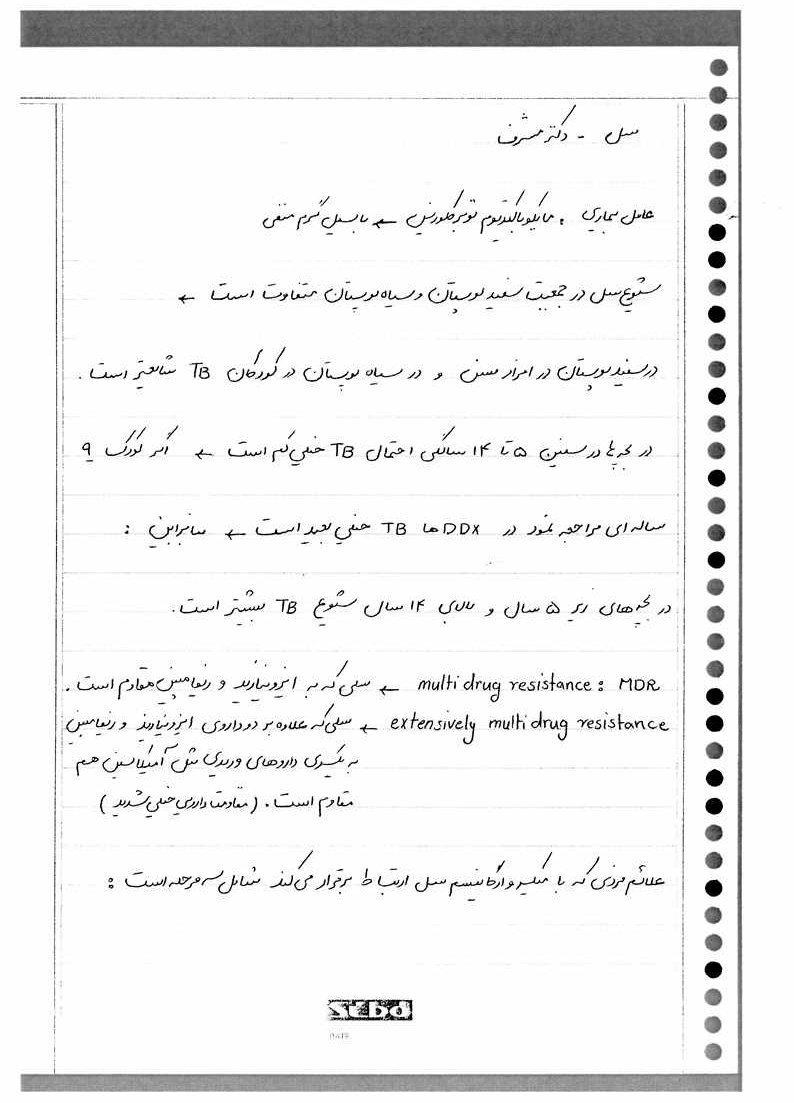 سل - دکتر مشرف
عامل بیماری : مایکوباکتریوم توبرکلوزیس ← باسیل گرم منفی
شیوع سل در جمعیت سفید پوستان و سیاه پوستان متفاوت است ←
در سفید پوستان در افراد مسن و در سیاه پوستان در کودکان TB شایعتر است .
در بچه ها در سنین ۵ تا ۱۴ سالگی احتمال TB خیلی کم است ← اگر کودک ۹
ساله ای مراجعه نمود در DDX ها TB خیلی بعید است ← بنابراین :
در بچه های زیر ۵ سال و بالای ۱۴ سال شیوع TB بیشتر است .
MDR : multi drug resistance ← سلی که به ایزونیازید و ریفامپین مقاوم است .
extensively multi drug resistance ← سلی که علاوه بر دو داروی ایزونیازید و ریفامپین
به یکسری داروهای وریدی مثل آمیکاسین هم
مقاوم است . ( مقاومت دارویی خیلی شدید )
علائم فردی که با میکروارگانیسم سل ارتباط برقرار می کند شامل سه مرحله است :
stbd
DATE